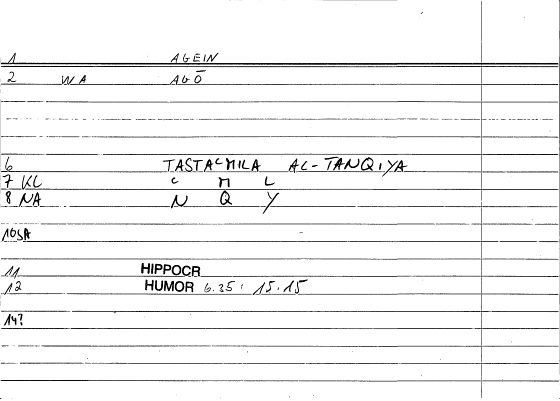 1 AGEIN
2 WA AGŌ
6 TASTAᶜMILA AL-TANQIYA
7 KL ᶜ M L
8 NA N Q Y
10SA
11 HIPPOCR
12 HUMOR 6.35: 15.15
14?